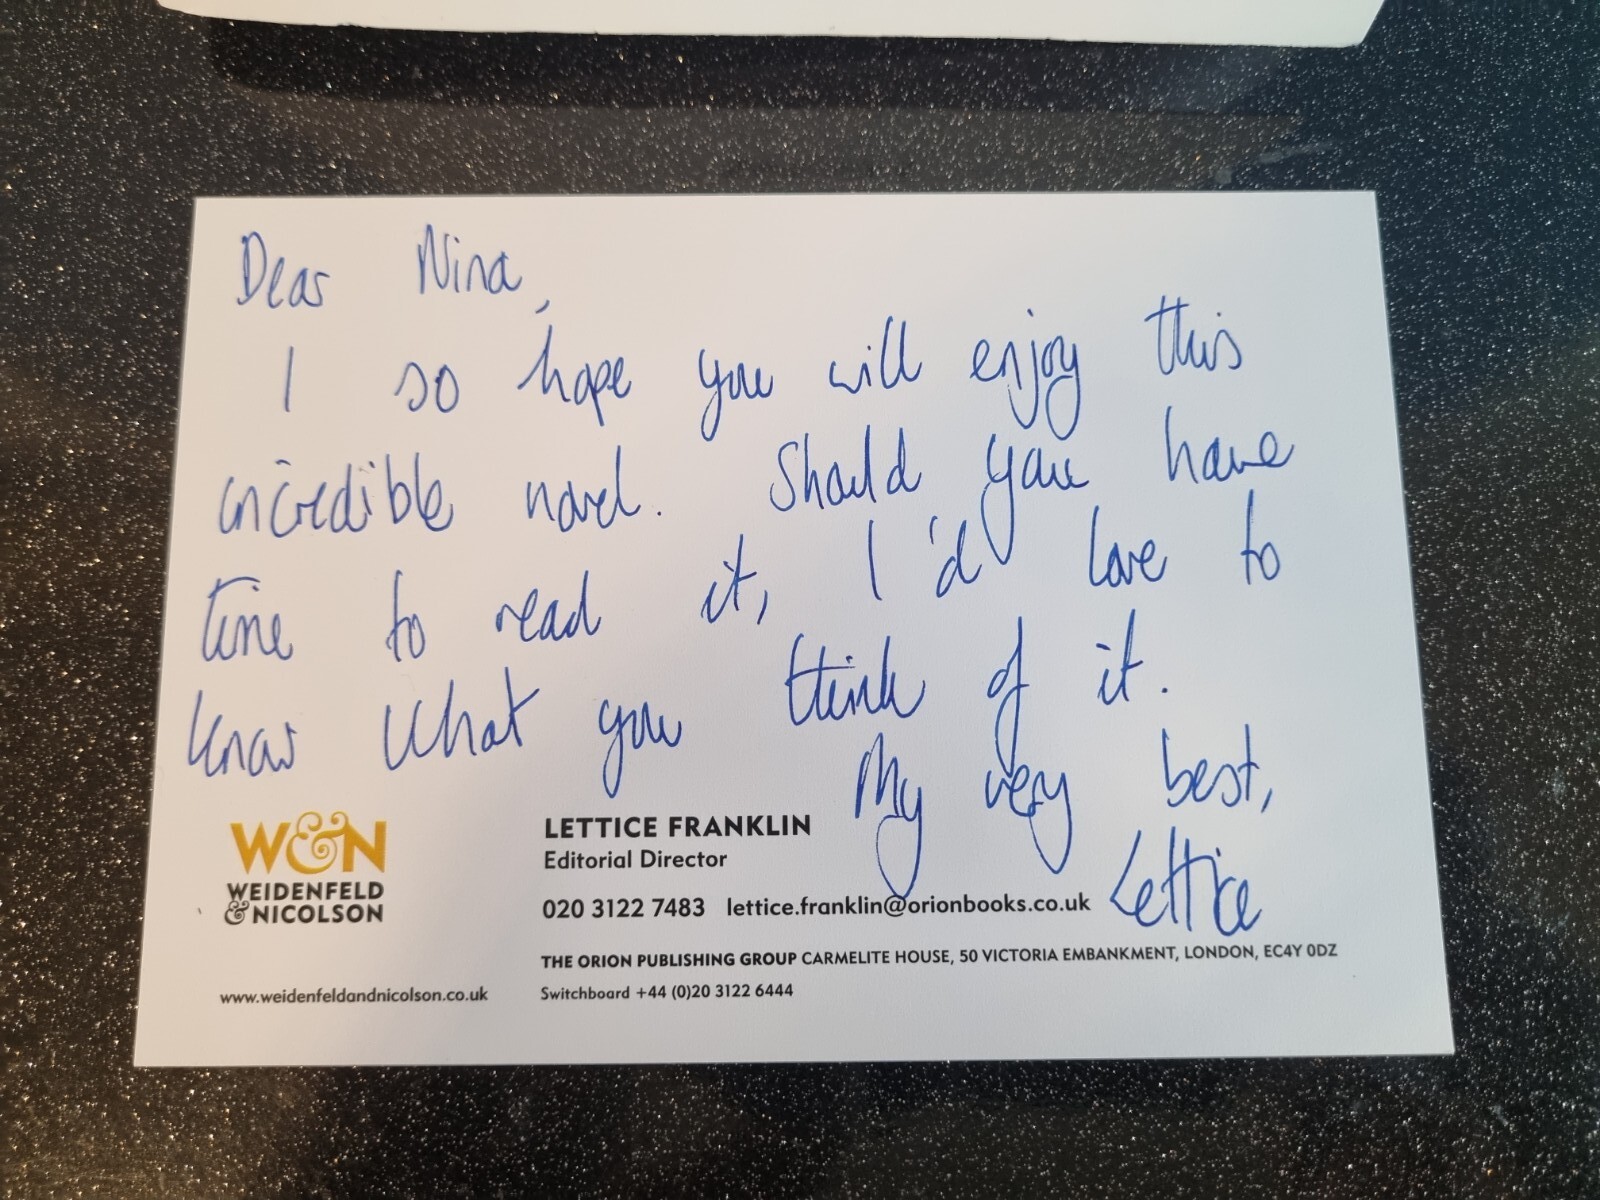 Dear Nina,
I so hope you will enjoy this
incredible novel. Should you have
time to read it, I'd love to
know what you think of it.
My very best,
Lettice
W&N
WEIDENFELD
& NICOLSON
www.weidenfeldandnicolson.co.uk
LETTICE FRANKLIN
Editorial Director
020 3122 7483 lettice.franklin@orionbooks.co.uk
THE ORION PUBLISHING GROUP CARMELITE HOUSE, 50 VICTORIA EMBANKMENT, LONDON, EC4Y 0DZ
Switchboard +44 (0)20 3122 6444